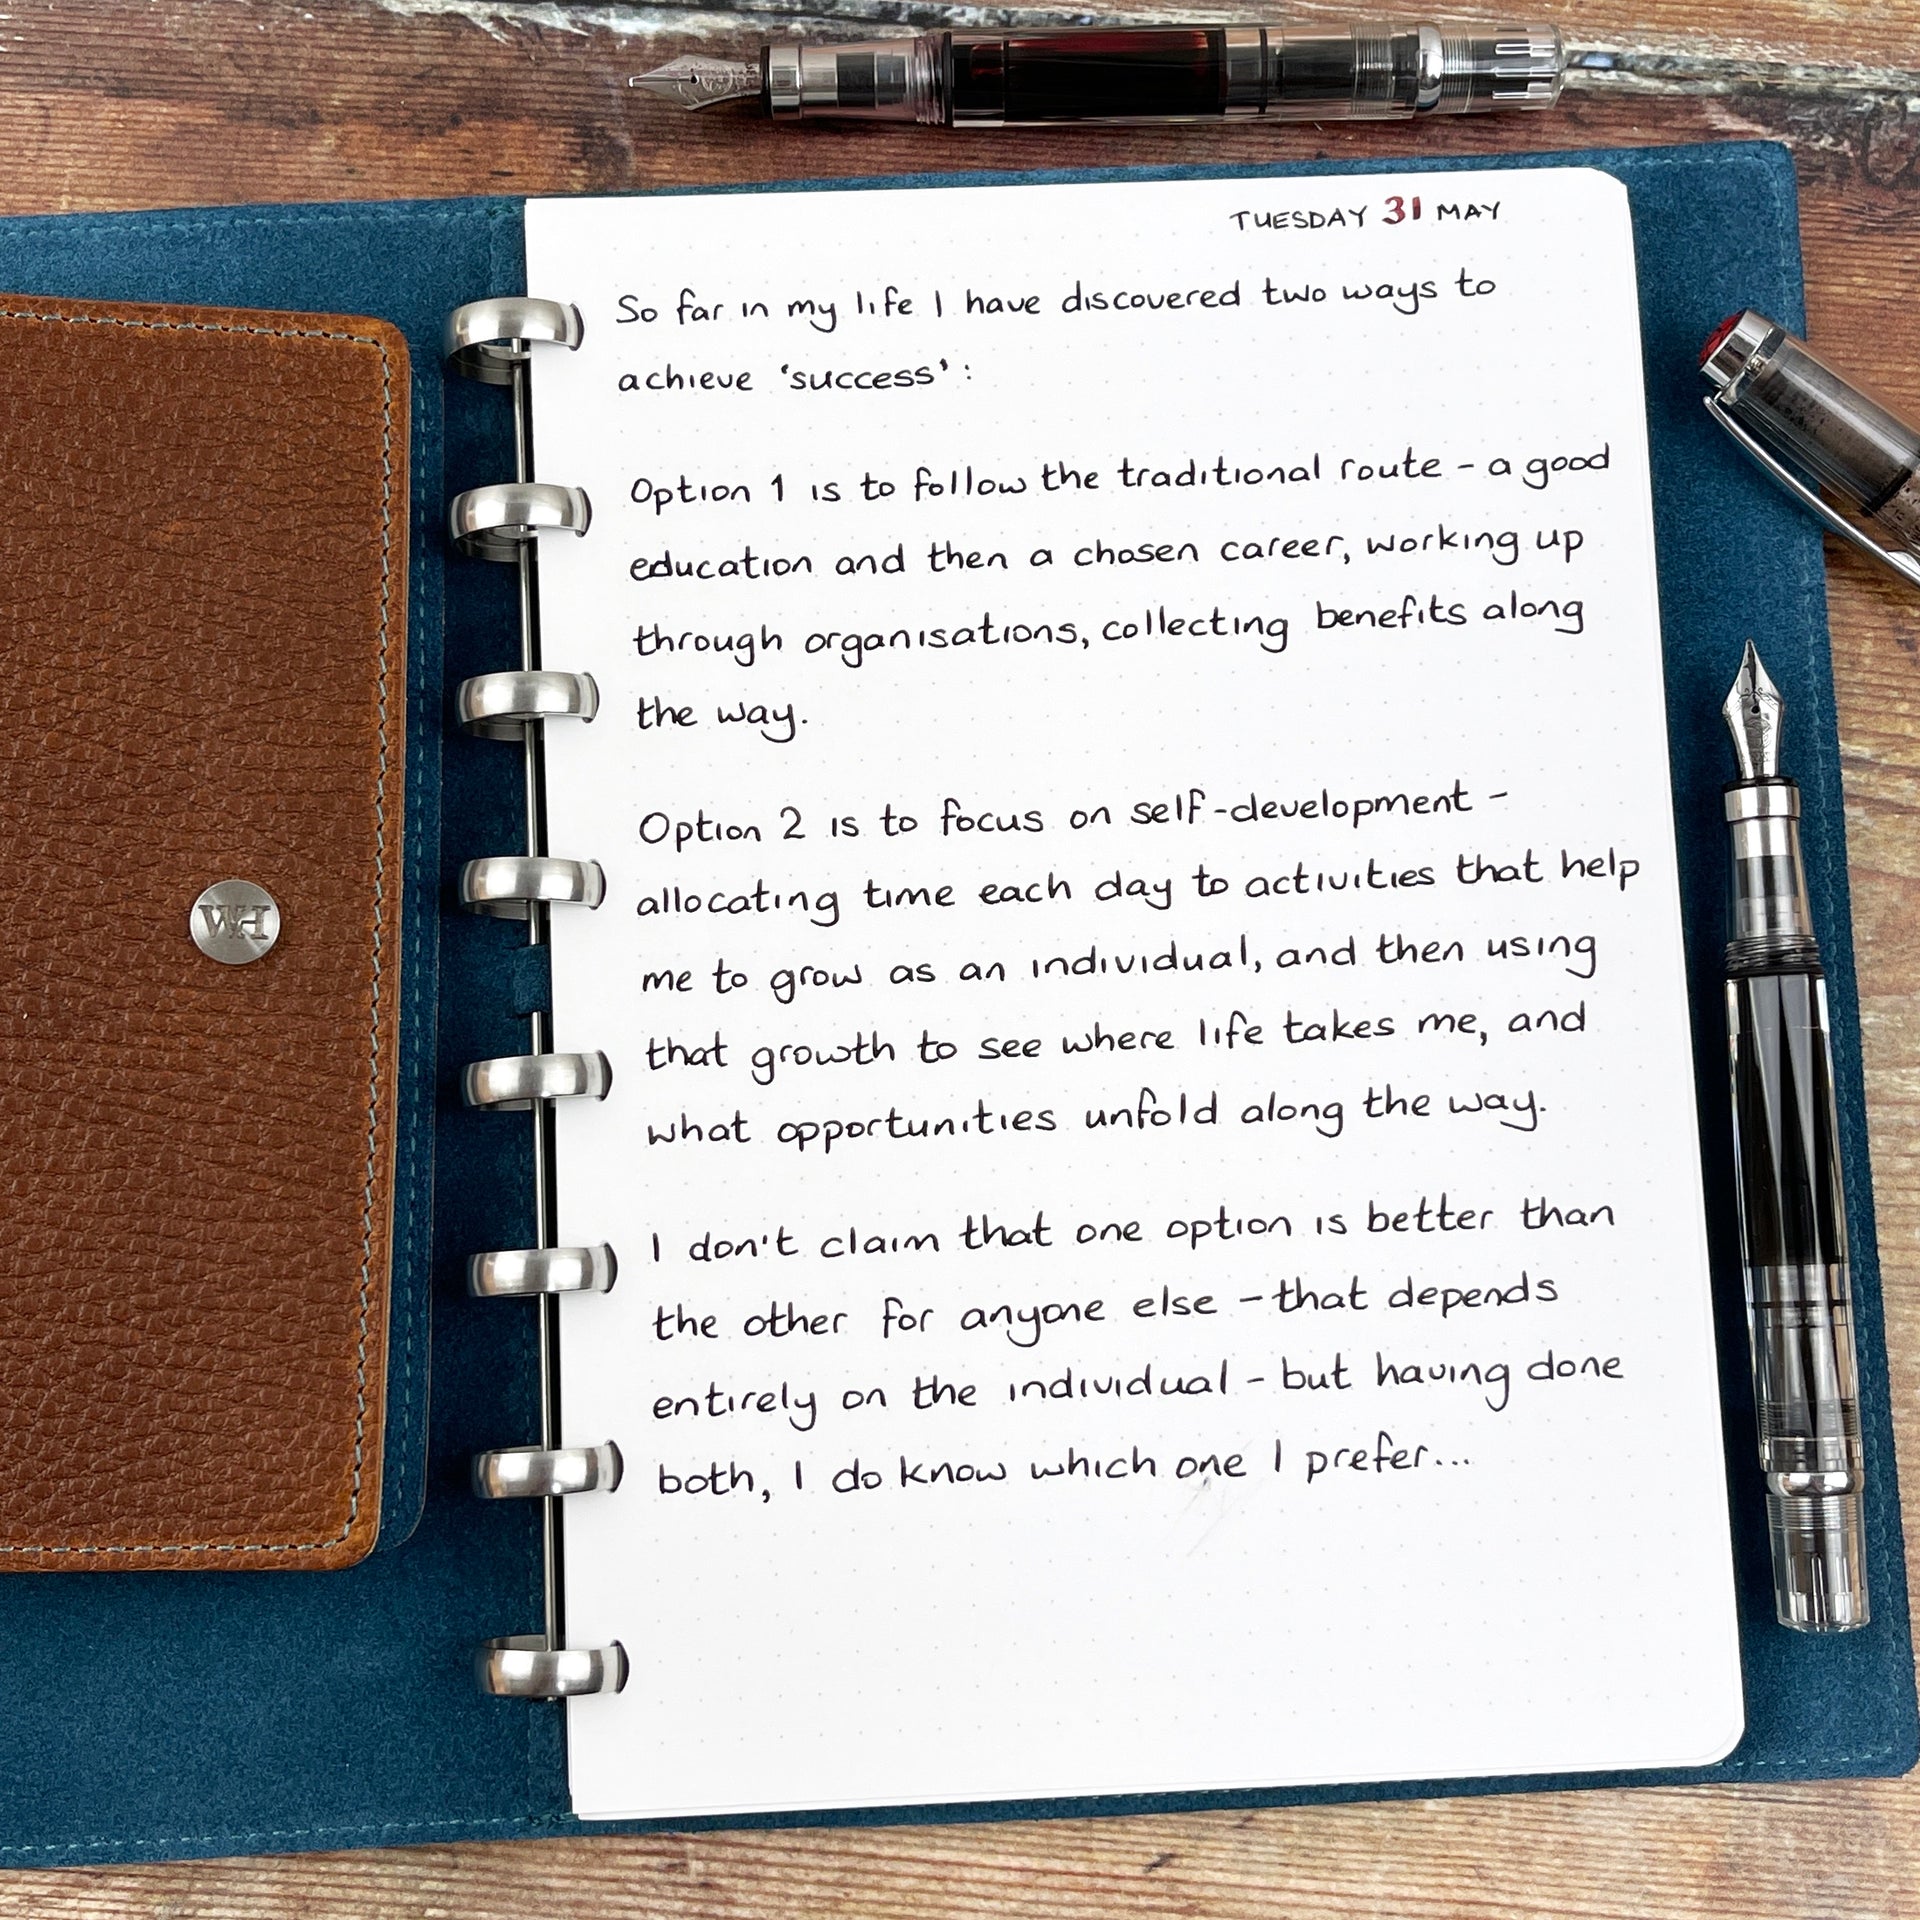 TUESDAY 31 MAY
So far in my life I have discovered two ways to
achieve 'success':
Option 1 is to follow the traditional route - a good
education and then a chosen career, working up
through organisations, collecting benefits along
the way.
Option 2 is to focus on self-development -
allocating time each day to activities that help
me to grow as an individual, and then using
that growth to see where life takes me, and
what opportunities unfold along the way.
I don't claim that one option is better than
the other for anyone else - that depends
entirely on the individual - but having done
both, I do know which one I prefer...
WH